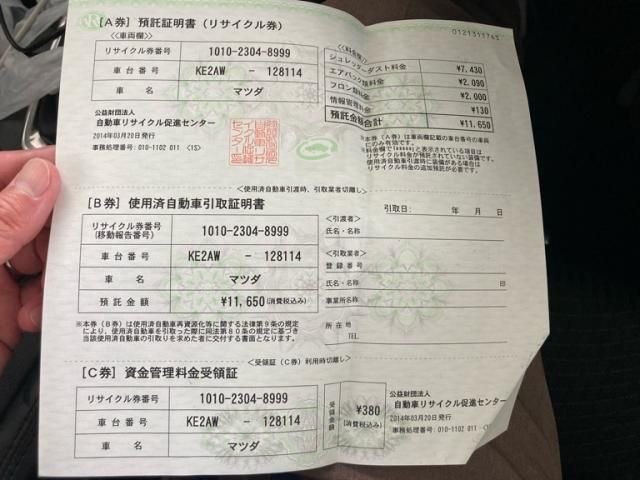 0121311761
[A券] 預託証明書 (リサイクル券)
<車両欄>
リサイクル券番号 1010-2304-8999
車台番号 KE2AW - 128114
車名 マツダ
<料金欄>
シュレッダーダスト料金 ¥7,430
エアバッグ類料金 ¥2,090
フロン類料金 ¥2,000
情報管理料金 ¥130
預託金額合計 ¥11,650
公益財団法人
自動車リサイクル促進センター
2014年03月20日発行
事務処理番号: 010-1102 011 <1S>
※本券(A券)は車両欄記載の車台番号の車両
にのみ有効です。
と表示されている項目は
リサイクル料金が預託されていない装備です。
使用済自動車引渡時に装備がある場合は
リサイクル料金の追加預託が必要です。
<使用済自動車引渡時、引取業者切離し>
[B券] 使用済自動車引取証明書
リサイクル券番号
(移動報告番号) 1010-2304-8999
車台番号 KE2AW - 128114
車名 マツダ
預託金額 ¥11,650(消費税込み)
※本券(B券)は使用済自動車再資源化等に関する法律第9条の規定
により、使用済自動車を引取った際に同法第80条の規定に基づき
当該使用済自動車の引取りを求めた者に交付する書面となります。
引取日: 年 月 日
<引渡者>
氏名・名称
<引取業者>
登録番号
氏名・名称 印
事業所名称
所在地
TEL
<受領証(C券)利用時切離し>
[C券] 資金管理料金受領証
リサイクル券番号 1010-2304-8999
車台番号 KE2AW - 128114
車名 マツダ
受領金額
¥380
(消費税込み)
公益財団法人
自動車リサイクル促進センター
2014年03月20日発行
事務処理番号: 010-1102 011